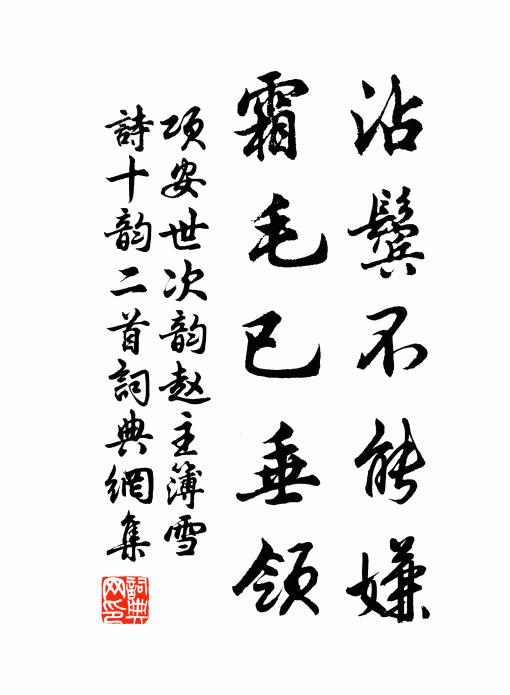 沾鬓不能嫌
霜毛已垂领
项安世次韵赵主簿雪
詩十韵二首詞典網集
詞典网印